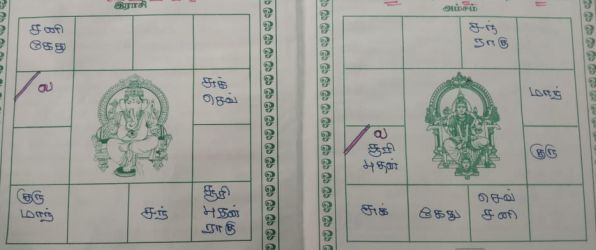 இராசி
சனி
கேது
ல
சுக்
செவ்
குரு
மாந்
சந்
சூரி
புதன்
ராகு
அம்சம்
சந்
ராகு
மாந்
ல
சூரி
புதன்
குரு
சுக்
கேது
செவ்
சனி